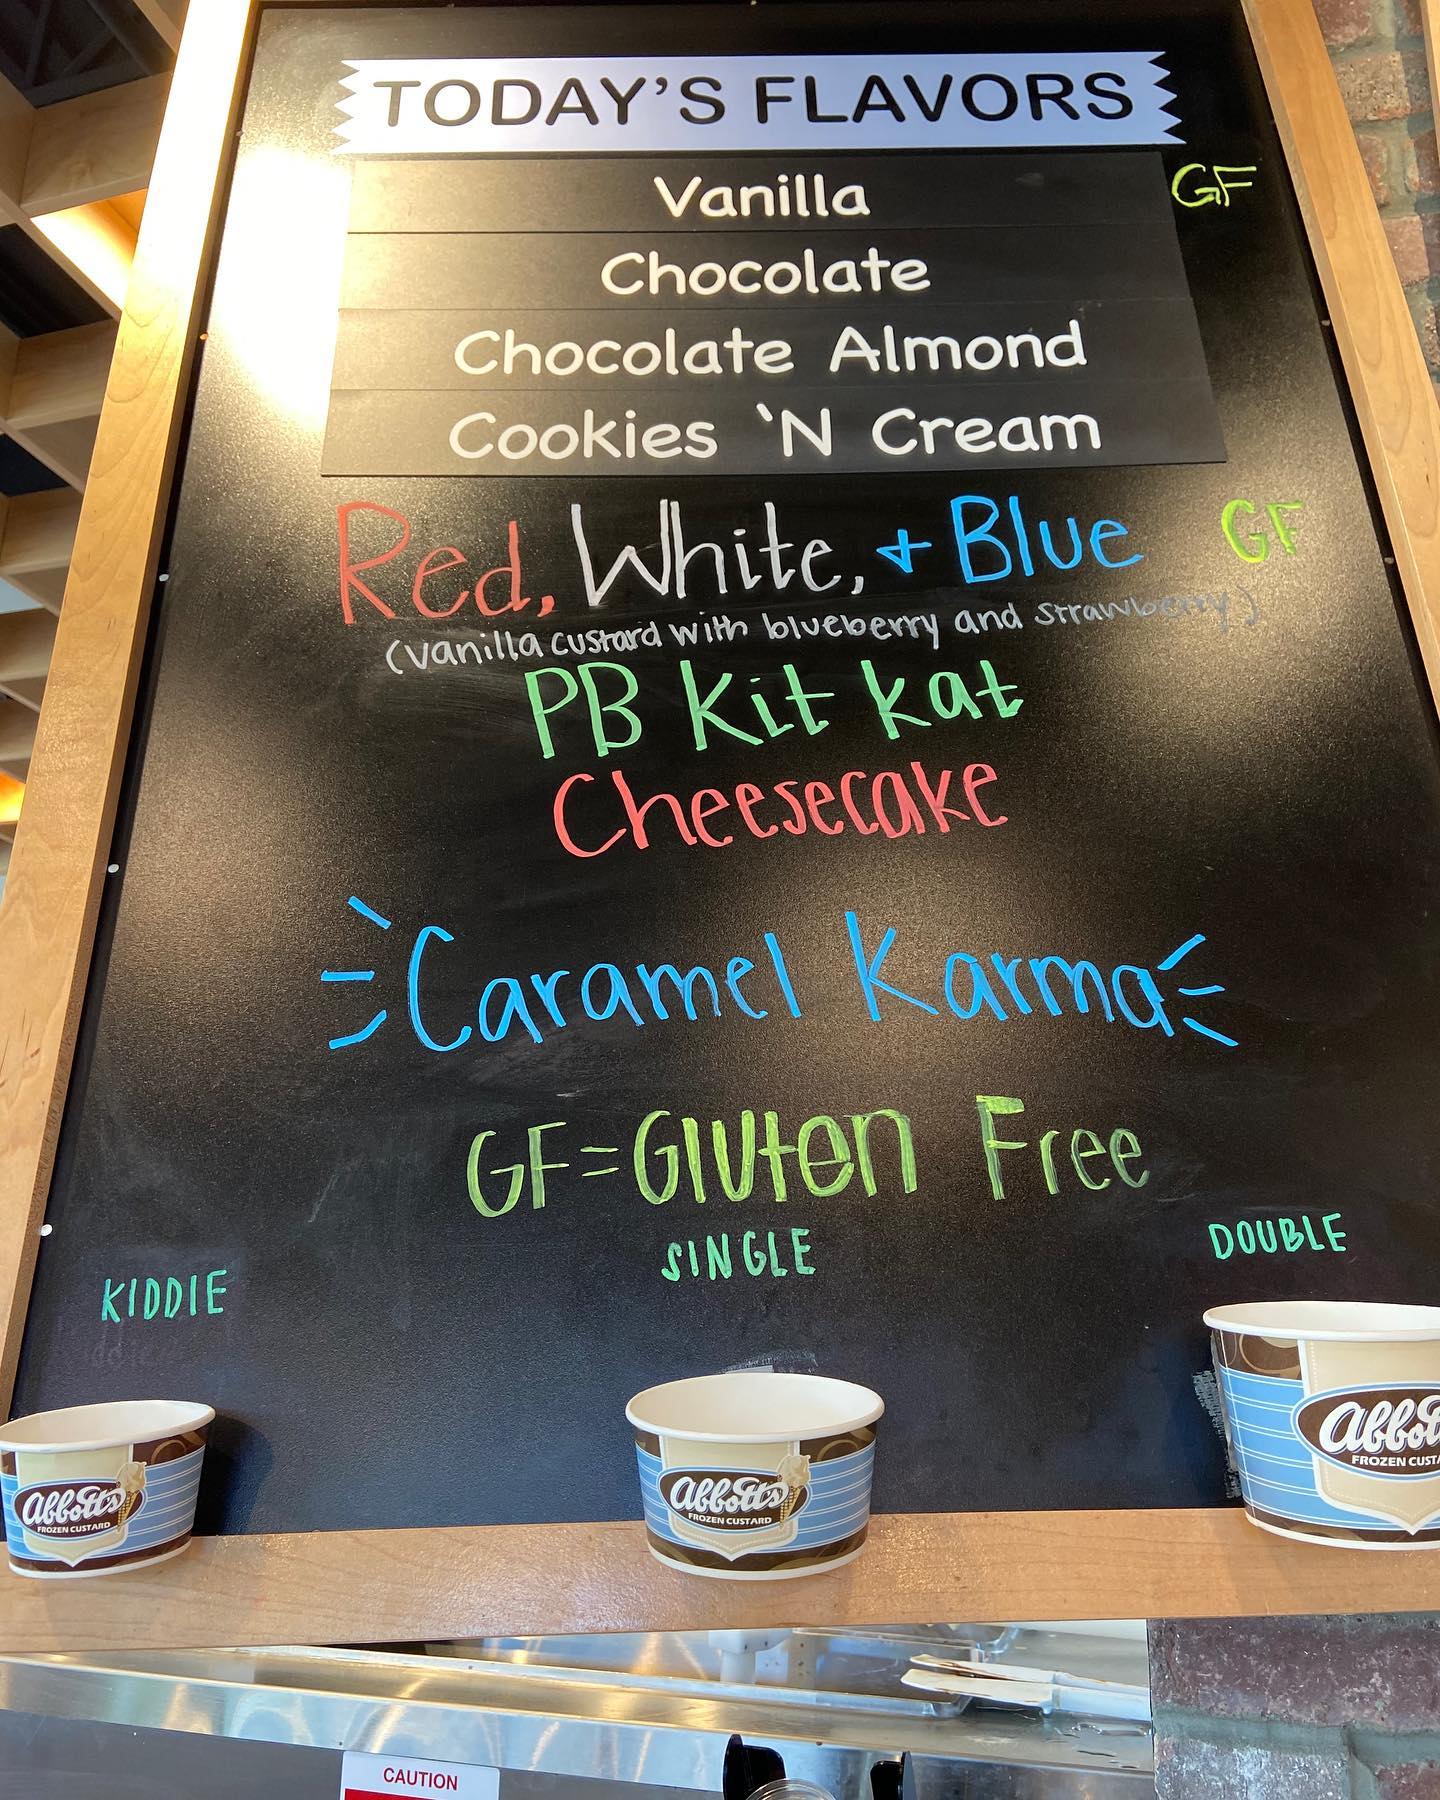 TODAY'S FLAVORS
Vanilla GF
Chocolate
Chocolate Almond
Cookies 'N Cream
Red, White, + Blue GF
(vanilla custard with blueberry and strawberry)
PB Kit Kat
Cheesecake
Caramel Karma
GF=Gluten Free
KIDDIE SINGLE DOUBLE
Abbott's
FROZEN CUSTARD
Abbott's
FROZEN CUSTARD
Abbot
FROZEN CUSTA
CAUTION